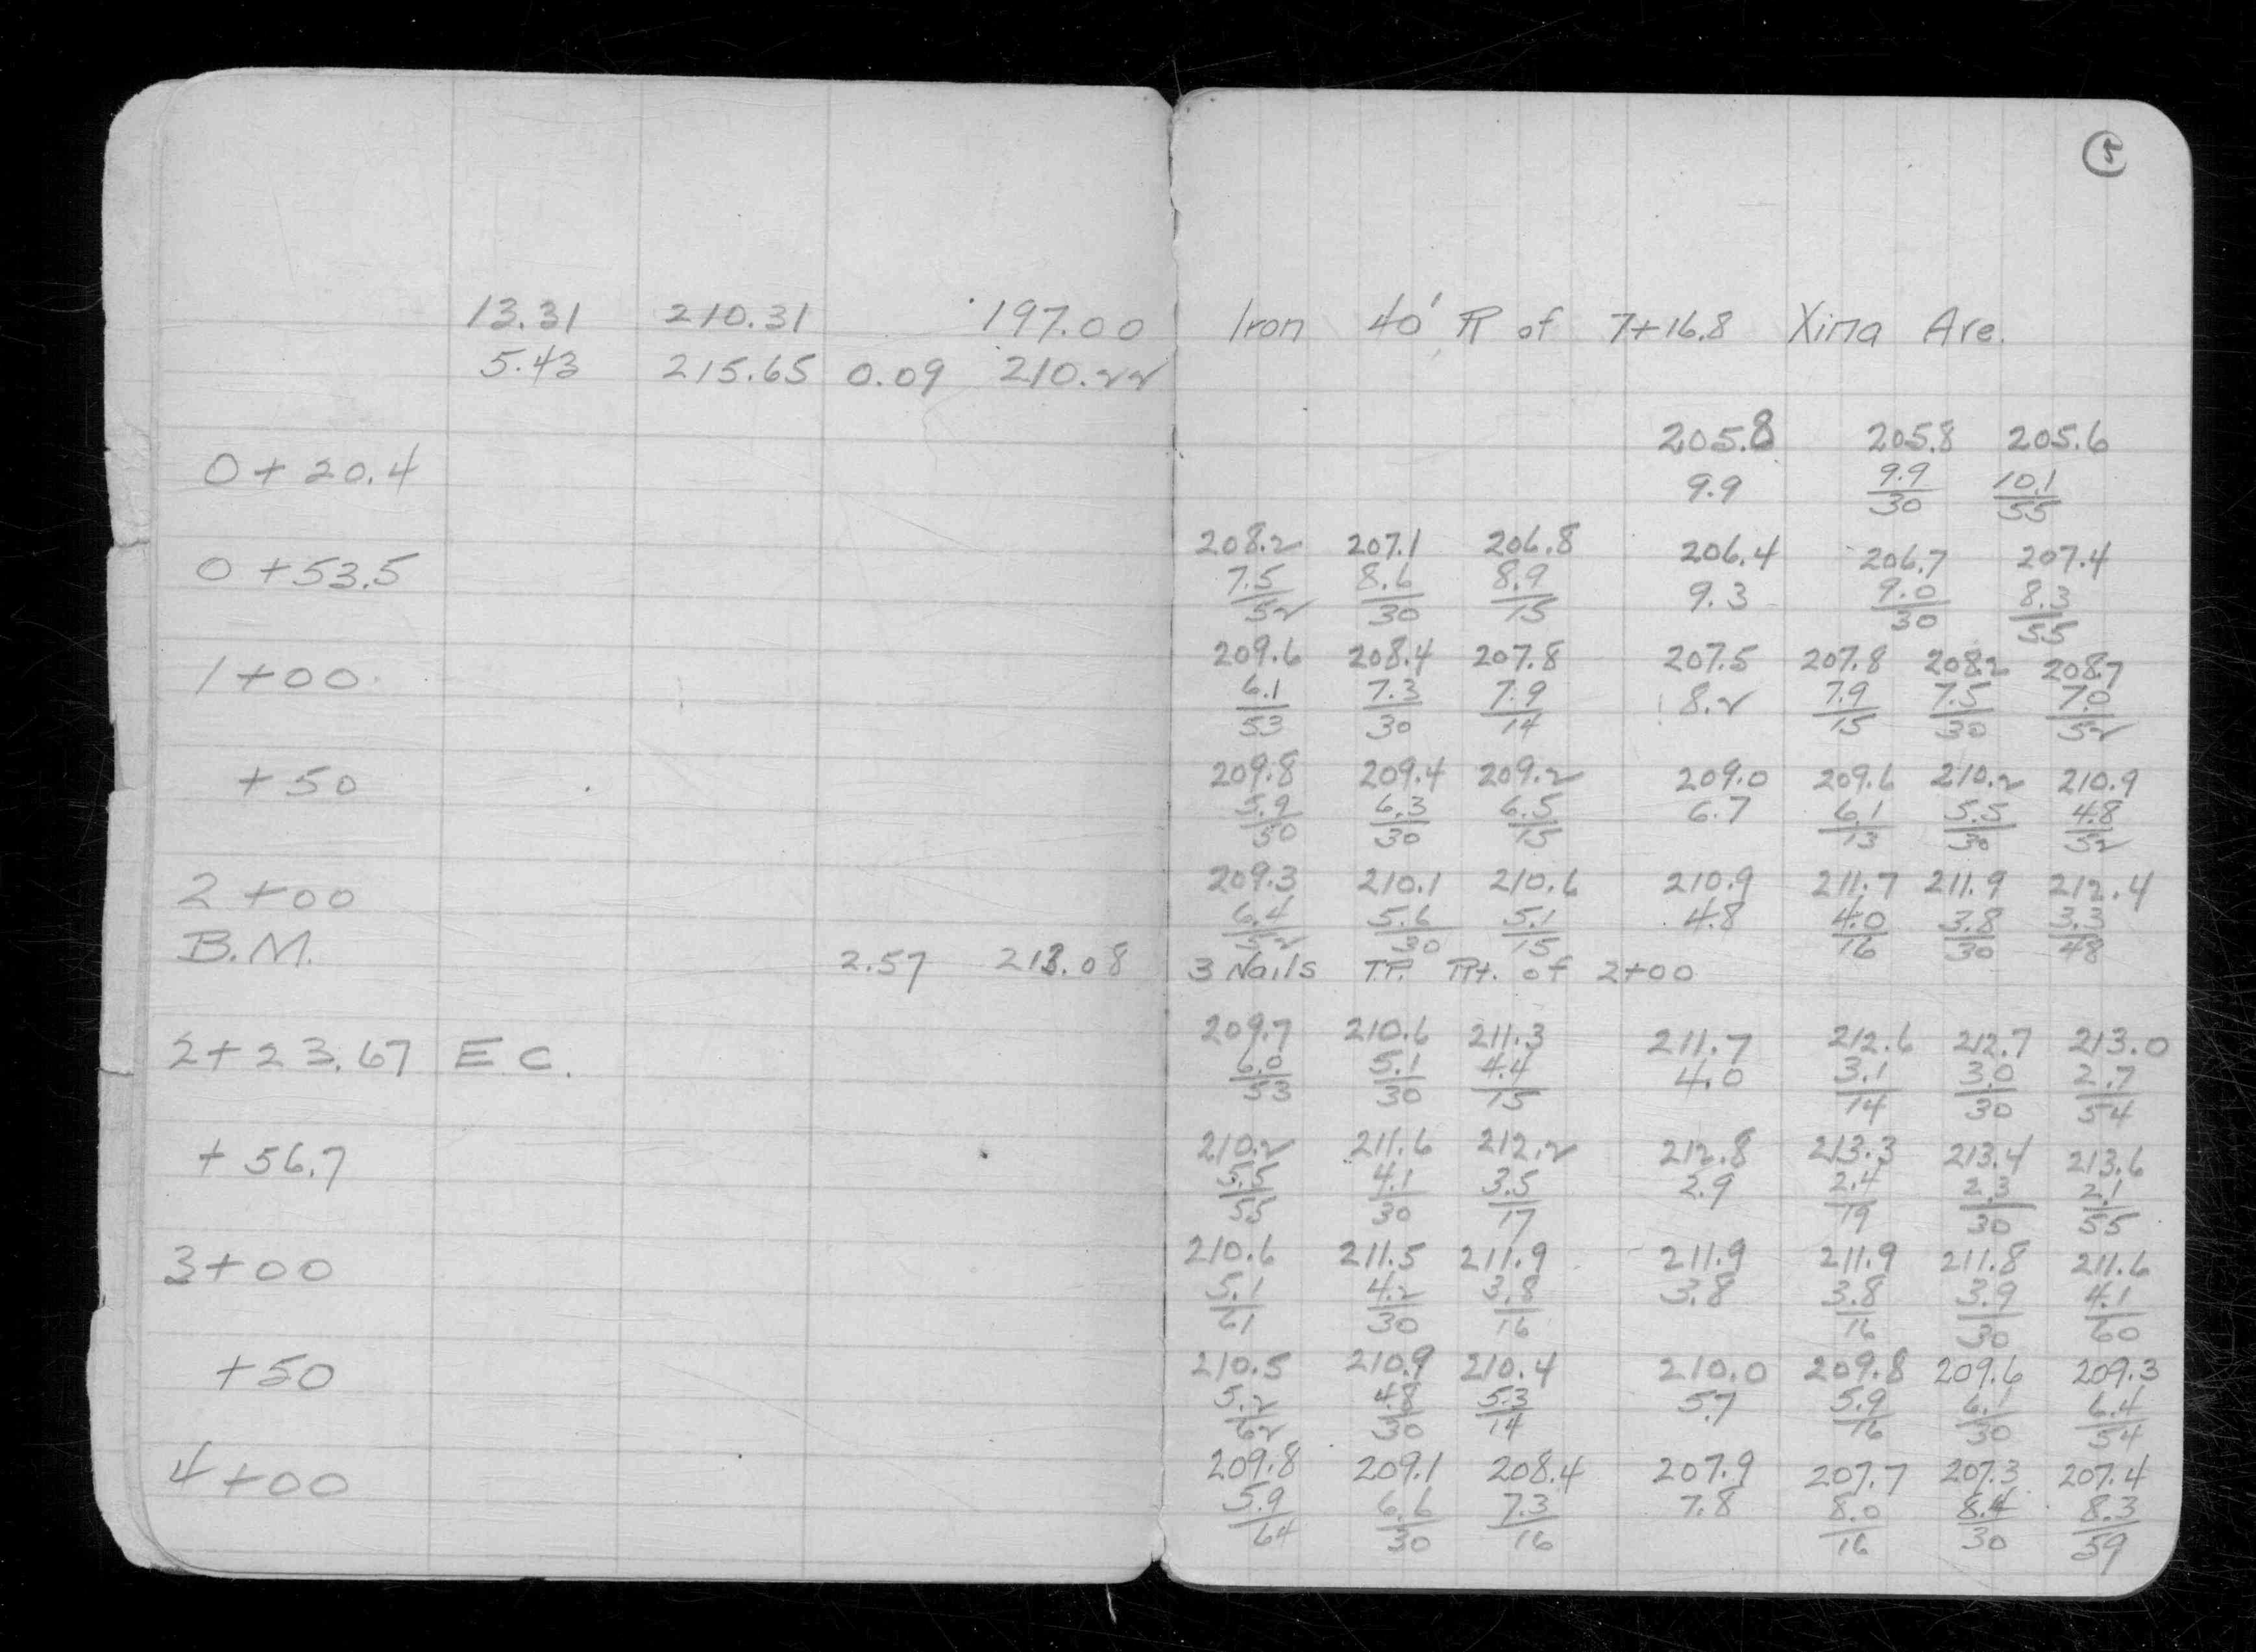 5
13.31 210.31 197.00 Iron 40' R of 7+16.8 Xima Ave.
5.43 215.65 0.09 210.22
205.8 205.8 205.6
0+20.4 9.9 9.9/30 10.1/55
208.2 207.1 206.8 206.4 206.7 207.4
0+53.5 7.5/52 8.6/30 8.9/15 9.3 9.0/30 8.3/55
209.6 208.4 207.8 207.5 207.8 208.2 208.7
1+00 6.1/53 7.3/30 7.9/14 8.2 7.9/15 7.5/30 7.0/52
209.8 209.4 209.2 209.0 209.6 210.2 210.9
+50 5.9/50 6.3/30 6.5/15 6.7 6.1/13 5.5/30 4.8/52
209.3 210.1 210.6 210.9 211.7 211.9 212.4
2+00 6.4/52 5.6/30 5.1/15 4.8 4.0/16 3.8/30 3.3/48
B.M. 2.57 213.08 3 Nails T.P. Rt. of 2+00
209.7 210.6 211.3 211.7 212.6 212.7 213.0
2+23.67 E.C. 6.0/53 5.1/30 4.4/15 4.0 3.1/14 3.0/30 2.7/54
210.2 211.6 212.2 212.8 213.3 213.4 213.6
+56.7 5.5/55 4.1/30 3.5/17 2.9 2.4/19 2.3/30 2.1/55
210.6 211.5 211.9 211.9 211.9 211.8 211.6
3+00 5.1/61 4.2/30 3.8/16 3.8 3.8/16 3.9/30 4.1/60
210.5 210.9 210.4 210.0 209.8 209.6 209.3
+50 5.2/62 4.8/30 5.3/14 5.7 5.9/16 6.1/30 6.4/54
209.8 209.1 208.4 207.9 207.7 207.3 207.4
4+00 5.9/64 6.6/30 7.3/16 7.8 8.0/16 8.4/30 8.3/59